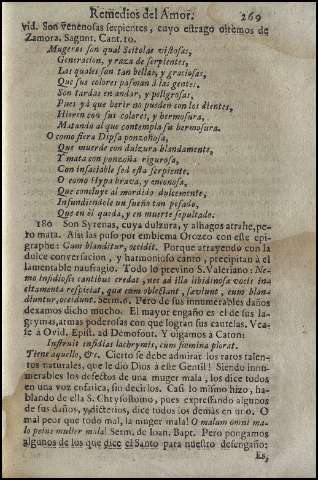 Remedios del Amor. 269
vid. Son venenosas serpientes, cuyo estrago oiremos de
Zamora. Sagunt. Cant. 10.
Mugeres son qual Scitolas vistosas,
Generacion, y raza de serpientes,
Las quales son tan bellas, y graciosas,
Que sus colores pasman à las gentes.
Son tardas en andar, y poligrosas,
Pues yà que herir no pueden con los dientes,
Hieren con sus colores, y hermosura,
Matando al que contempla su hermosura.
O como fiera Dipsa ponzoñosa,
Que muerde con dulzura blandamente,
Y mata con ponzoña rigurosa,
Con insaciable sed esta serpiente.
O como Hypa brava, y enconosa,
Que concluye al mordido dulcemente,
Infundiendole un sueño tan pesado,
Que en él queda, y en muerte sepultado.
186 Son Syrenas, cuya dulzura, y alhagos atrahe, pe-
ro mata. Asi las puso por emblema Orozco con este epi-
graphe: Cum blanditur, occidit. Porque atrayendo con la
dulce conversacion, y harmonioso canto, precipitan à el
lamentable naufragio. Todo lo previno S. Valeriano: Ne-
mo insidiosis cantibus credat, nec ad illa libidinosæ vocis in-
citamenta respiciat, quæ cum oblectant, sæviunt, cum blan-
diuntur, occidunt. Serm. 6. Pero de sus innumerables daños
dexamos dicho mucho. El mayor engaño es el de sus la-
grymas, armas poderosas con que logran sus cautelas. Vea-
se à Ovid. Epist. ad Demofont. Y oigamos à Caton:
Instruit insidias lachrymis, cum fœmina plorat.
Tiene aquello, &c. Cierto se debe admirar los raros talen-
tos naturales, que le dió Dios à este Gentil! Siendo innu-
merables los defectos de una muger mala, los dice todos
en una voz enfatica, sin decirlos. Casi lo mismo hizo, ha-
blando de ella S. Chrysostomo, pues expresando algunos
de sus daños, y dicterios, dice todos los demás en uno. O
mal peor que todo mal, la muger mala! O malum omni ma-
lo peius mulier mala! Serm. de Ioan. Bapt. Pero pongamos
algunos de los que dice el Santo para nuestro desengaño:
Es,